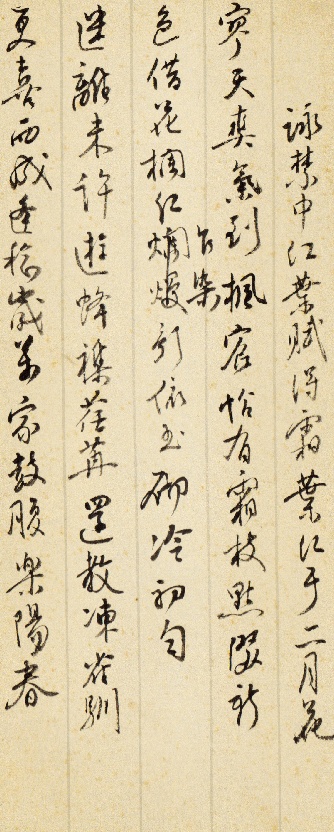 詠禁中红葉賦得霜葉红于二月花
寥天爽氣到楓宸恰有霜枝點綴新
乍染
色借花欄红爛熳影依玉砌冷初匀
迷離未許遊蜂襍荏苒還教凍雀馴
更喜西成逢稔歲萬家鼓腹樂陽春